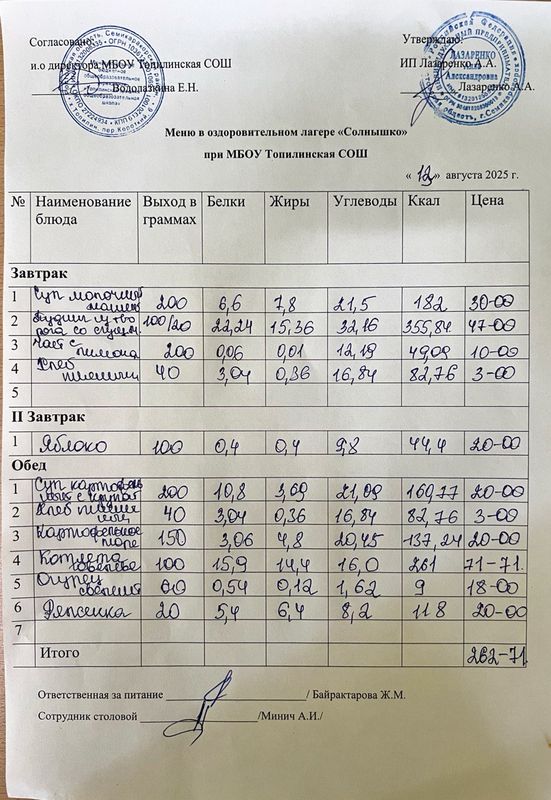 Согласовано: Утверждаю:
и.о директора МБОУ Топилинская СОШ ИП Лазаренко А.А.
Водолазкина Е.Н. Лазаренко А.А.
Меню в оздоровительном лагере «Солнышко»
при МБОУ Топилинская СОШ
« 12 » августа 2025 г.
№ Наименование блюда Выход в граммах Белки Жиры Углеводы Ккал Цена
Завтрак
1 Суп молочный 200 6,6 7,8 21,5 182 30-00
2 Пудинг из творога со сгущен. 100/20 22,24 15,36 32,16 355,84 47-00
3 Чай с лимоном 200 0,06 0,01 12,19 49,09 10-00
4 Хлеб пшенич 40 3,04 0,36 16,84 82,76 3-00
5
II Завтрак
1 Яблоко 100 0,4 0,4 9,8 44,4 20-00
Обед
1 Суп картофель ный с крупой 200 10,8 3,69 21,09 169,77 20-00
2 Хлеб пшени 40 3,04 0,36 16,84 82,76 3-00
3 Картофельное пюре 150 3,06 4,8 20,45 137,24 20-00
4 Котлета 100 15,9 14,4 16,0 261 71-71
5 Огурец свежий 60 0,54 0,12 1,62 9 18-00
6 20 5,4 6,4 8,2 118 20-00
7
Итого 262-71
Ответственная за питание / Байрактарова Ж.М.
Сотрудник столовой /Минич А.И./